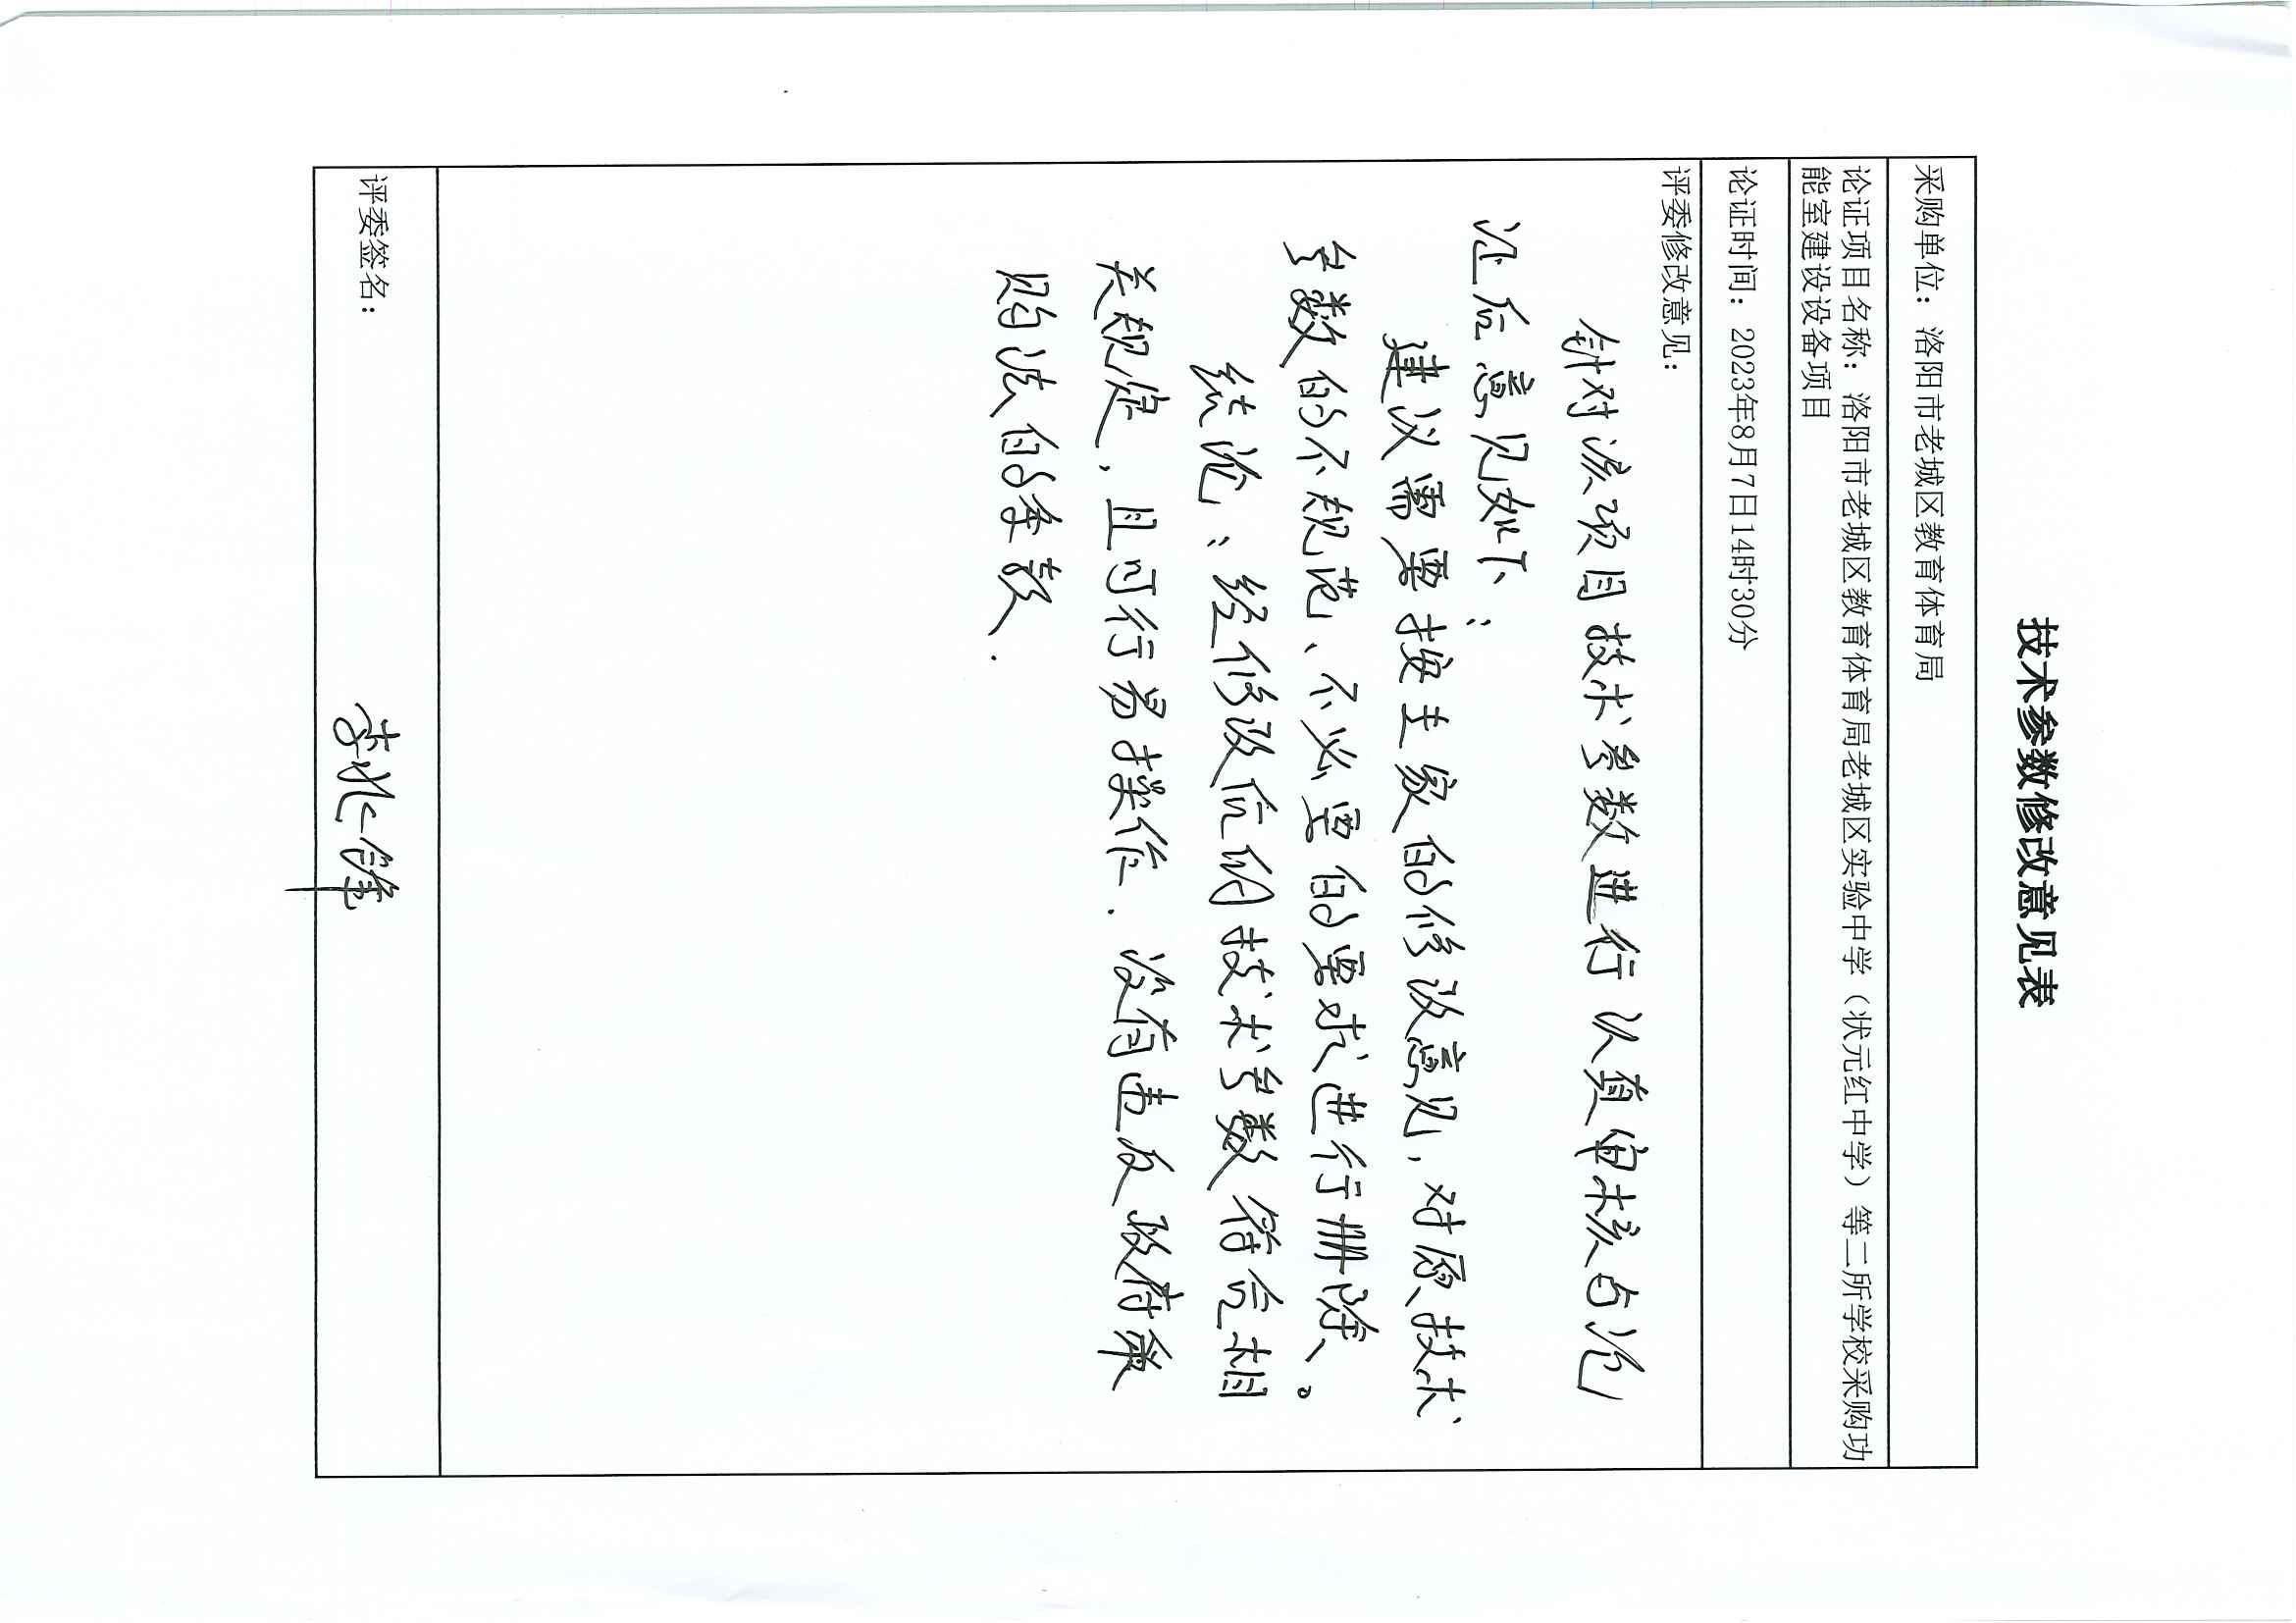 技术参数修改意见表
采购单位：洛阳市老城区教育体育局
论证项目名称：洛阳市老城区教育体育局老城区实验中学（状元红中学）等二所学校采购功
能室建设设备项目
论证时间：2023年8月7日14时30分
评委修改意见：
针对该项目技术参数进行认真审核与论
证后意见如下：
建议需要按专家的修改意见，对原技术
参数的不规范、不必要的要求进行删除。
结论：经修改后的技术参数符合相
关规定，且可行易操作．没有违反政府采
购法的条款．
评委签名：